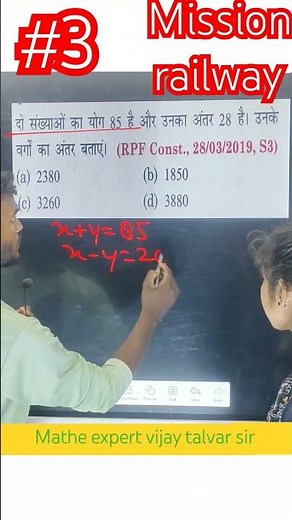 #3
Mission
railway
दो संख्याओं का योग 85 है और उनका अंतर 28 है। उनके
वर्गों का अंतर बताएं। (RPF Const., 28/03/2019, S3)
(a) 2380 (b) 1850
(c) 3260 (d) 3880
x+y=85
x-y=2
Mathe expert vijay talvar sir